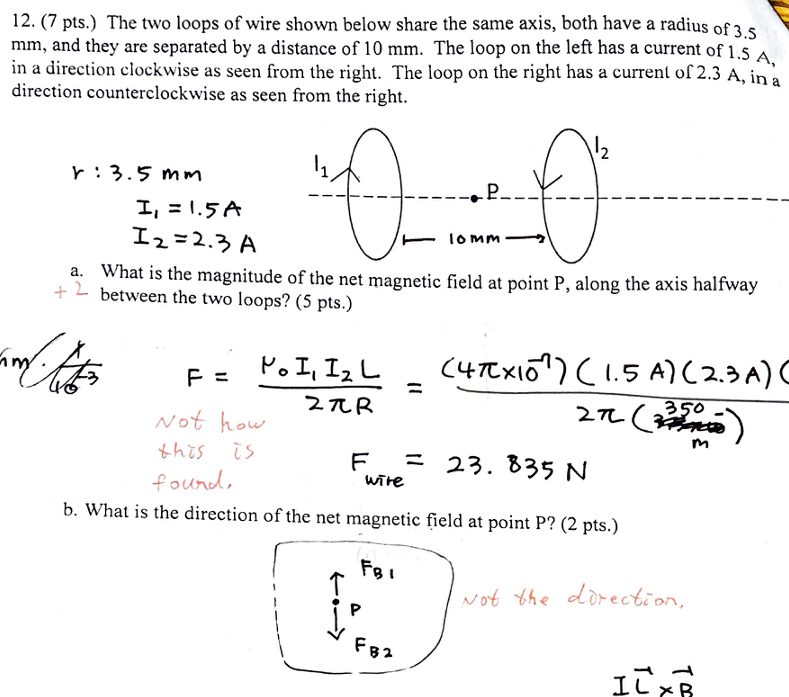 12. (7 pts.) The two loops of wire shown below share the same axis, both have a radius of 3.5
mm, and they are separated by a distance of 10 mm. The loop on the left has a current of 1.5 A,
in a direction clockwise as seen from the right. The loop on the right has a current of 2.3 A, in a
direction counterclockwise as seen from the right.
I₁
I₂
r : 3.5 mm
P
I₁ = 1.5 A
I₂ = 2.3 A
10 mm
a. What is the magnitude of the net magnetic field at point P, along the axis halfway
+2 between the two loops? (5 pts.)
F = μ₀ I₁ I₂ L / 2πR = (4π×10⁻⁷) (1.5 A) (2.3 A) ( / 2π ( 350 m )
Not how
this is
found.
F wire = 23.835 N
b. What is the direction of the net magnetic field at point P? (2 pts.)
F_B1
P
F_B2
Not the direction.
I L⃗ × B⃗